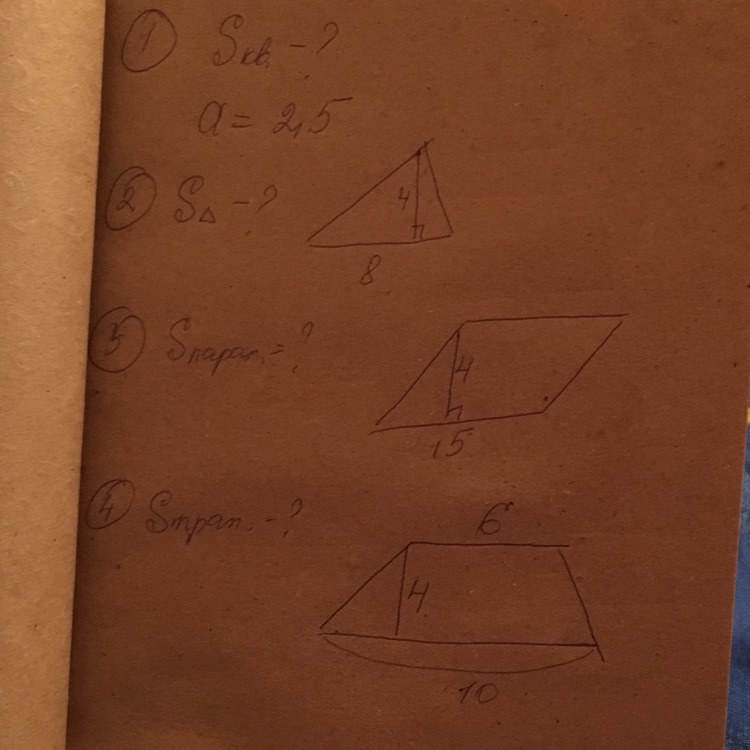 ① Sкв. - ?
a = 2,5
② S△ - ?
4
8
③ Sпарал. = ?
4
15
④ Sтрап. - ?
6
4
10